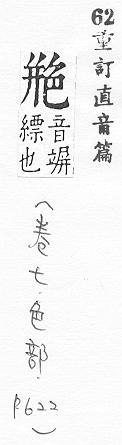 62重訂直音篇
艵
音
縹也
（卷七．色部．P622）